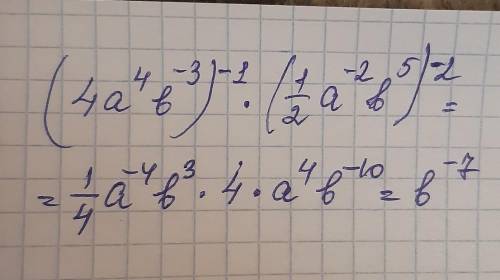 (4a⁴b⁻³)⁻¹ · (½a⁻²b⁵)⁻² =
= ¼a⁻⁴b³ · 4 · a⁴b⁻¹⁰ = b⁻⁷